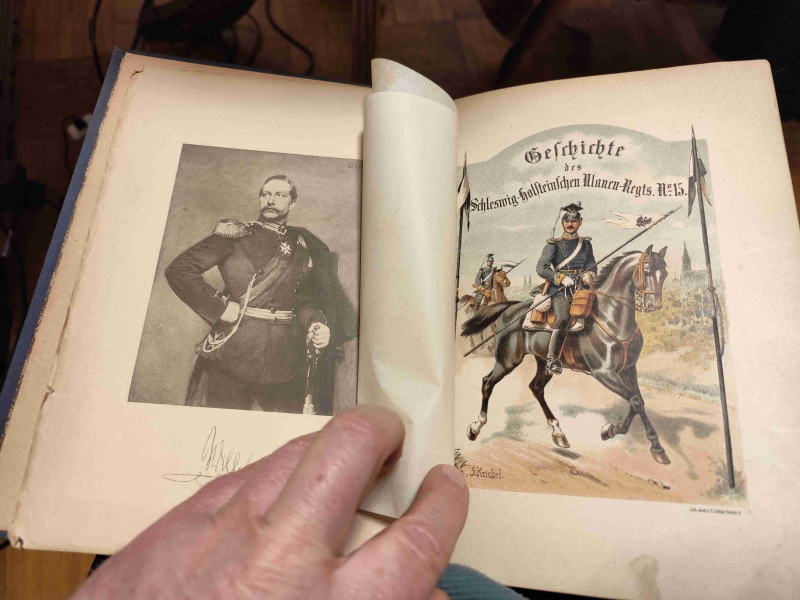 Geschichte
des
Schleswig-Holsteinschen Ulanen-Regts. No 15.
G. Krickel.